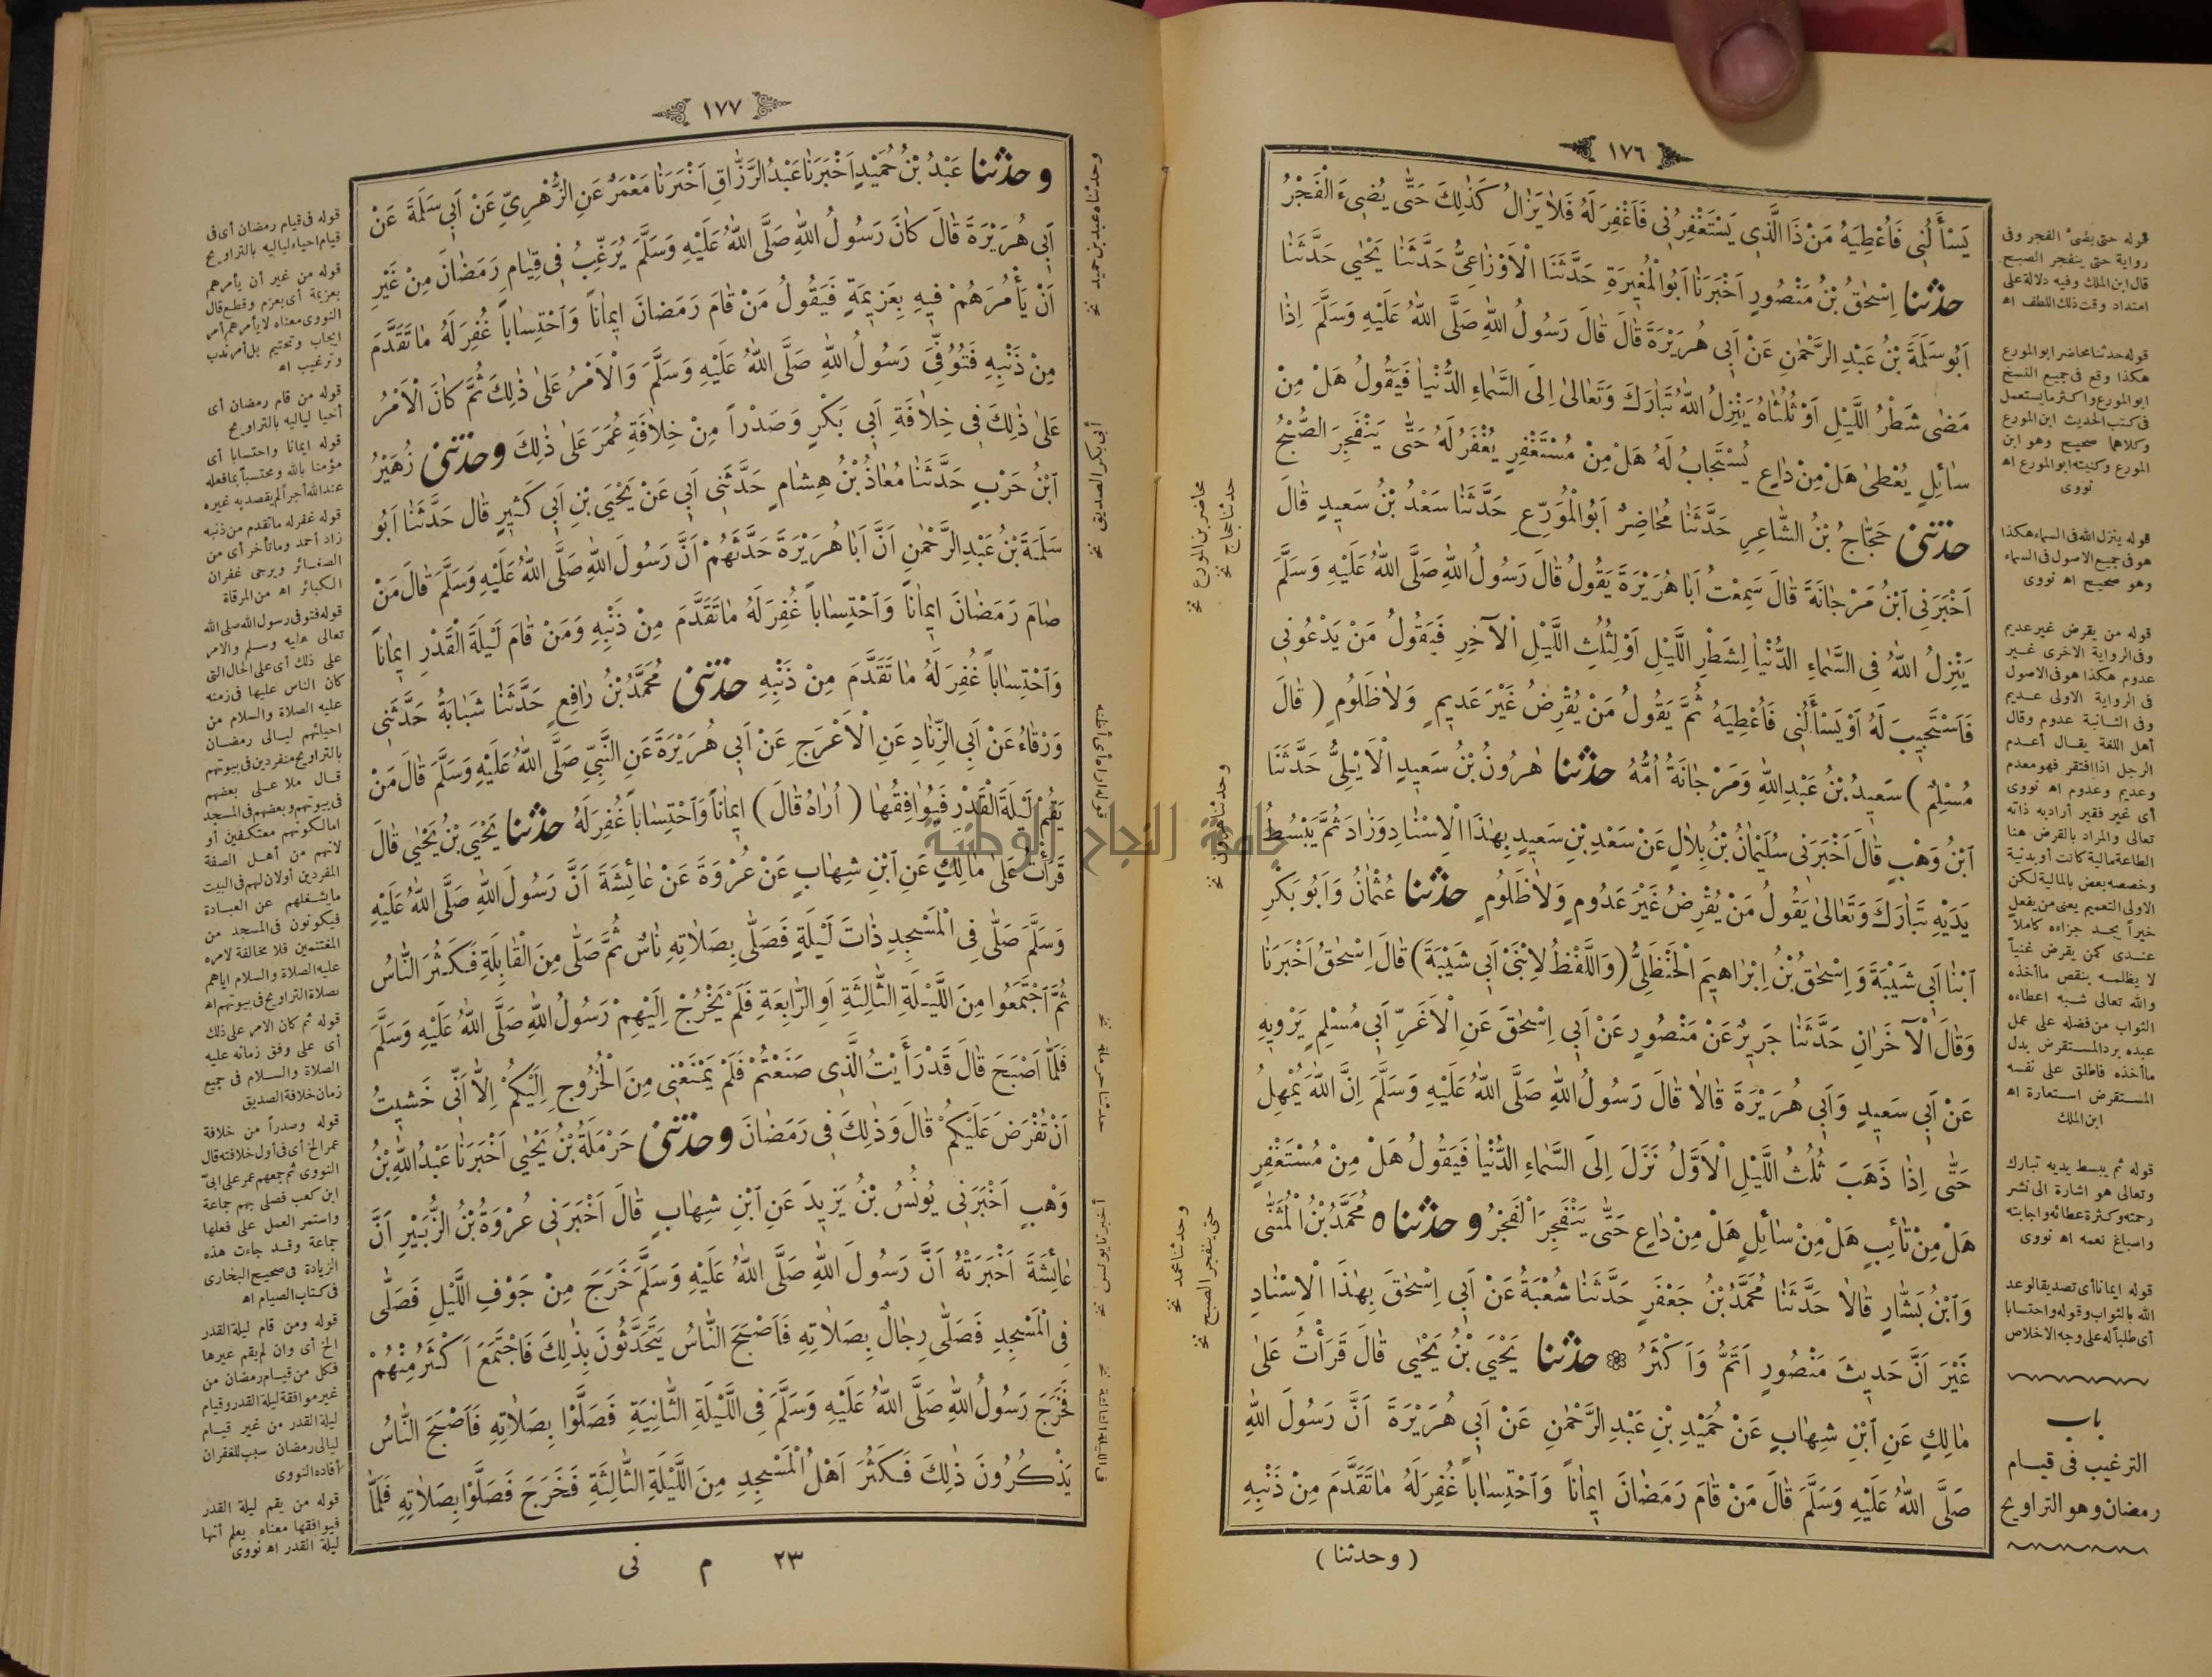 ١٧٦
يَسْأَلُنِى فَاُعْطِيَهُ مَنْ ذَا الَّذِى يَسْتَغْفِرُنِى فَاَغْفِرَ لَهُ فَلاٰ يَزٰالُ كَذٰلِكَ حَتّٰى يُضِىءَ الْفَجْرُ
حدثنا اِسْحٰقُ بْنُ مَنْصُورٍ اَخْبَرَنٰا اَبُوالْمُغِيرَةِ حَدَّثَنَا الْاَوْزٰاعِىُّ حَدَّثَنٰا يَحْيٰى حَدَّثَنٰا
اَبُو سَلَمَةَ بْنُ عَبْدِ الرَّحْمٰنِ عَنْ اَبِى هُرَيْرَةَ قٰالَ قٰالَ رَسُولُ اللّٰهِ صَلَّى اللّٰهُ عَلَيْهِ وَسَلَّمَ اِذٰا
مَضٰى شَطْرُ اللَّيْلِ اَوْ ثُلُثٰاهُ يَنْزِلُ اللّٰهُ تَبٰارَكَ وَتَعٰالٰى اِلَى السَّمٰاءِ الدُّنْيٰا فَيَقُولُ هَلْ مِنْ
سٰائِلٍ يُعْطٰى هَلْ مِنْ دٰاعٍ يُسْتَجٰابُ لَهُ هَلْ مِنْ مُسْتَغْفِرٍ يُغْفَرُ لَهُ حَتّٰى يَنْفَجِرَ الصُّبْحُ
حدثنى حَجّٰاجُ بْنُ الشّٰاعِرِ حَدَّثَنٰا مُحٰاضِرٌ اَبُوالْمُوَرِّعِ حَدَّثَنٰا سَعْدُ بْنُ سَعِيدٍ قٰالَ
اَخْبَرَنِى ابْنُ مَرْجٰانَةَ قٰالَ سَمِعْتُ اَبٰا هُرَيْرَةَ يَقُولُ قٰالَ رَسُولُ اللّٰهِ صَلَّى اللّٰهُ عَلَيْهِ وَسَلَّمَ
يَنْزِلُ اللّٰهُ فِى السَّمٰاءِ الدُّنْيٰا لِشَطْرِ اللَّيْلِ اَوْ لِثُلُثِ اللَّيْلِ الْآخِرِ فَيَقُولُ مَنْ يَدْعُونِى
فَاَسْتَجِيبَ لَهُ اَوْ يَسْأَلُنِى فَاُعْطِيَهُ ثُمَّ يَقُولُ مَنْ يُقْرِضُ غَيْرَ عَدِيمٍ وَلاٰ ظَلُومٍ (قٰالَ
مُسْلِمٌ) سَعِيدُ بْنُ عَبْدِ اللّٰهِ وَمَرْجٰانَةُ اُمُّهُ حدثنا هٰرُونُ بْنُ سَعِيدٍ الْاَيْلِىُّ حَدَّثَنَا
ابْنُ وَهْبٍ قٰالَ اَخْبَرَنِى سُلَيْمٰانُ بْنُ بِلاٰلٍ عَنْ سَعْدِ بْنِ سَعِيدٍ بِهٰذَا الْاِسْنٰادِ وَزٰادَ ثُمَّ يَبْسُطُ
يَدَيْهِ تَبٰارَكَ وَتَعٰالٰى يَقُولُ مَنْ يُقْرِضُ غَيْرَ عَدُومٍ وَلاٰ ظَلُومٍ حدثنا عُثْمٰانُ وَاَبُو بَكْرٍ
ابْنٰا اَبِى شَيْبَةَ وَاِسْحٰقُ بْنُ اِبْرٰاهِيمَ الْحَنْظَلِىُّ (وَاللَّفْظُ لِابْنَىْ اَبِى شَيْبَةَ) قٰالَ اِسْحٰقُ اَخْبَرَنٰا
وَقٰالَ الْآخَرٰانِ حَدَّثَنٰا جَرِيرٌ عَنْ مَنْصُورٍ عَنْ اَبِى اِسْحٰقَ عَنِ الْاَغَرِّ اَبِى مُسْلِمٍ يَرْوِيهِ
عَنْ اَبِى سَعِيدٍ وَاَبِى هُرَيْرَةَ قٰالاٰ قٰالَ رَسُولُ اللّٰهِ صَلَّى اللّٰهُ عَلَيْهِ وَسَلَّمَ اِنَّ اللّٰهَ يُمْهِلُ
حَتّٰى اِذٰا ذَهَبَ ثُلُثُ اللَّيْلِ الْاَوَّلُ نَزَلَ اِلَى السَّمٰاءِ الدُّنْيٰا فَيَقُولُ هَلْ مِنْ مُسْتَغْفِرٍ
هَلْ مِنْ تٰائِبٍ هَلْ مِنْ سٰائِلٍ هَلْ مِنْ دٰاعٍ حَتّٰى يَنْفَجِرَ الْفَجْرُ و حدثناه مُحَمَّدُ بْنُ الْمُثَنّٰى
وَابْنُ بَشّٰارٍ قٰالاٰ حَدَّثَنٰا مُحَمَّدُ بْنُ جَعْفَرٍ حَدَّثَنٰا شُعْبَةُ عَنْ اَبِى اِسْحٰقَ بِهٰذَا الْاِسْنٰادِ
غَيْرَ اَنَّ حَدِيثَ مَنْصُورٍ اَتَمُّ وَاَكْثَرُ ❁ حدثنا يَحْيَى بْنُ يَحْيٰى قٰالَ قَرَأْتُ عَلٰى
مٰالِكٍ عَنِ ابْنِ شِهٰابٍ عَنْ حُمَيْدِ بْنِ عَبْدِ الرَّحْمٰنِ عَنْ اَبِى هُرَيْرَةَ اَنَّ رَسُولَ اللّٰهِ
صَلَّى اللّٰهُ عَلَيْهِ وَسَلَّمَ قٰالَ مَنْ قٰامَ رَمَضٰانَ اِيمٰاناً وَاحْتِسٰاباً غُفِرَ لَهُ مٰا تَقَدَّمَ مِنْ ذَنْبِهِ
(وحدثنا)
قوله حتى يضئ الفجر وفى
رواية حتى ينفجر الصبح
قال ابن الملك وفيه دلالة على
امتداد وقت ذلك اللطف اه
قوله حدثنا محاضر ابو المورع
هكذا وقع فى جميع النسخ
ابو المورع واكثر ما يستعمل
فى كتب الحديث ابن المورع
وكلاهما صحيح وهو ابن
المورع وكنيته ابو المورع اه
نووى
قوله ينزل الله فى السماء هكذا
هو فى جميع الاصول فى السماء
وهو صحيح اه نووى
قوله من يقرض غير عديم
وفى الرواية الاخرى غير
عدوم هكذا هو فى الاصول
فى الرواية الاولى عديم
وفى الثانية عدوم وقال
أهل اللغة يقال أعدم
الرجل اذا افتقر فهو معدم
وعديم وعدوم اه نووى
أى غير فقير أراد به ذاته
تعالى والمراد بالقرض هنا
الطاعة مالية كانت أو بدنية
وخصصه بعض بالمالية لكن
الاولى التعميم يعنى من يفعل
خيراً يجد جزاءه كاملاً
عندى كمن يقرض غنياً
لا يظلمه بنقص ما أخذه
والله تعالى شبه اعطاءه
الثواب من فضله على عمل
عبده برد المستقرض بدل
ما أخذه فاطلق على نفسه
المستقرض استعارة اه
ابن الملك
قوله ثم يبسط يديه تبارك
وتعالى هو اشارة الى نشر
رحمته وكثرة عطائه واجابته
واسباغ نعمه اه نووى
قوله ايمانا أى تصديقا لوعد
الله بالثواب وقوله واحتسابا
أى طلبا له على وجه الاخلاص
باب
الترغيب فى قيام
رمضان وهو التراويح
محاضر بن المورع نخ
حدثنا حجاج نخ
وحدثنا هرون نخ
وحدثنا محمد نخ
حتى ينفجر الصبح نخ
١٧٧
و حدثنا عَبْدُ بْنُ حُمَيْدٍ اَخْبَرَنٰا عَبْدُ الرَّزّٰاقِ اَخْبَرَنٰا مَعْمَرٌ عَنِ الزُّهْرِىِّ عَنْ اَبِى سَلَمَةَ عَنْ
اَبِى هُرَيْرَةَ قٰالَ كٰانَ رَسُولُ اللّٰهِ صَلَّى اللّٰهُ عَلَيْهِ وَسَلَّمَ يُرَغِّبُ فِى قِيٰامِ رَمَضٰانَ مِنْ غَيْرِ
اَنْ يَأْمُرَهُمْ فِيهِ بِعَزِيمَةٍ فَيَقُولُ مَنْ قٰامَ رَمَضٰانَ اِيمٰاناً وَاحْتِسٰاباً غُفِرَ لَهُ مٰا تَقَدَّمَ
مِنْ ذَنْبِهِ فَتُوُفِّىَ رَسُولُ اللّٰهِ صَلَّى اللّٰهُ عَلَيْهِ وَسَلَّمَ وَالْاَمْرُ عَلٰى ذٰلِكَ ثُمَّ كٰانَ الْاَمْرُ
عَلٰى ذٰلِكَ فِى خِلاٰفَةِ اَبِى بَكْرٍ وَصَدْراً مِنْ خِلاٰفَةِ عُمَرَ عَلٰى ذٰلِكَ و حدثنى زُهَيْرُ
ابْنُ حَرْبٍ حَدَّثَنٰا مُعٰاذُ بْنُ هِشٰامٍ حَدَّثَنِى اَبِى عَنْ يَحْيَى بْنِ اَبِى كَثِيرٍ قٰالَ حَدَّثَنٰا اَبُو
سَلَمَةَ بْنُ عَبْدِ الرَّحْمٰنِ اَنَّ اَبٰا هُرَيْرَةَ حَدَّثَهُمْ اَنَّ رَسُولَ اللّٰهِ صَلَّى اللّٰهُ عَلَيْهِ وَسَلَّمَ قٰالَ مَنْ
صٰامَ رَمَضٰانَ اِيمٰاناً وَاحْتِسٰاباً غُفِرَ لَهُ مٰا تَقَدَّمَ مِنْ ذَنْبِهِ وَمَنْ قٰامَ لَيْلَةَ الْقَدْرِ اِيمٰاناً
وَاحْتِسٰاباً غُفِرَ لَهُ مٰا تَقَدَّمَ مِنْ ذَنْبِهِ حدثنى مُحَمَّدُ بْنُ رٰافِعٍ حَدَّثَنٰا شَبٰابَةُ حَدَّثَنِى
وَرْقٰاءُ عَنْ اَبِى الزِّنٰادِ عَنِ الْاَعْرَجِ عَنْ اَبِى هُرَيْرَةَ عَنِ النَّبِىِّ صَلَّى اللّٰهُ عَلَيْهِ وَسَلَّمَ قٰالَ مَنْ
يَقُمْ لَيْلَةَ الْقَدْرِ فَيُوٰافِقُهٰا (اُرٰاهُ قٰالَ) اِيمٰاناً وَاحْتِسٰاباً غُفِرَ لَهُ حدثنا يَحْيَى بْنُ يَحْيٰى قٰالَ
قَرَأْتُ عَلٰى مٰالِكٍ عَنِ ابْنِ شِهٰابٍ عَنْ عُرْوَةَ عَنْ عٰائِشَةَ اَنَّ رَسُولَ اللّٰهِ صَلَّى اللّٰهُ عَلَيْهِ
وَسَلَّمَ صَلّٰى فِى الْمَسْجِدِ ذٰاتَ لَيْلَةٍ فَصَلّٰى بِصَلاٰتِهِ نٰاسٌ ثُمَّ صَلّٰى مِنَ الْقٰابِلَةِ فَكَثُرَ النّٰاسُ
ثُمَّ اجْتَمَعُوا مِنَ اللَّيْلَةِ الثّٰالِثَةِ اَوِ الرّٰابِعَةِ فَلَمْ يَخْرُجْ اِلَيْهِمْ رَسُولُ اللّٰهِ صَلَّى اللّٰهُ عَلَيْهِ وَسَلَّمَ
فَلَمّٰا اَصْبَحَ قٰالَ قَدْ رَأَيْتُ الَّذِى صَنَعْتُمْ فَلَمْ يَمْنَعْنِى مِنَ الْخُرُوجِ اِلَيْكُمْ اِلاّٰ اَنِّى خَشِيتُ
اَنْ تُفْرَضَ عَلَيْكُمْ قٰالَ وَذٰلِكَ فِى رَمَضٰانَ و حدثنى حَرْمَلَةُ بْنُ يَحْيٰى اَخْبَرَنٰا عَبْدُ اللّٰهِ بْنُ
وَهْبٍ اَخْبَرَنِى يُونُسُ بْنُ يَزِيدَ عَنِ ابْنِ شِهٰابٍ قٰالَ اَخْبَرَنِى عُرْوَةُ بْنُ الزُّبَيْرِ اَنَّ
عٰائِشَةَ اَخْبَرَتْهُ اَنَّ رَسُولَ اللّٰهِ صَلَّى اللّٰهُ عَلَيْهِ وَسَلَّمَ خَرَجَ مِنْ جَوْفِ اللَّيْلِ فَصَلّٰى
فِى الْمَسْجِدِ فَصَلّٰى رِجٰالٌ بِصَلاٰتِهِ فَاَصْبَحَ النّٰاسُ يَتَحَدَّثُونَ بِذٰلِكَ فَاجْتَمَعَ اَكْثَرُ مِنْهُمْ
فَخَرَجَ رَسُولُ اللّٰهِ صَلَّى اللّٰهُ عَلَيْهِ وَسَلَّمَ فِى اللَّيْلَةِ الثّٰانِيَةِ فَصَلَّوْا بِصَلاٰتِهِ فَاَصْبَحَ النّٰاسُ
يَذْكُرُونَ ذٰلِكَ فَكَثُرَ اَهْلُ الْمَسْجِدِ مِنَ اللَّيْلَةِ الثّٰالِثَةِ فَخَرَجَ فَصَلَّوْا بِصَلاٰتِهِ فَلَمّٰا
٢٣ م نى
وحدثنا عبد بن حميد نخ
أبى بكر الصديق نخ
قوله اراه أى أظنه
حدثنا حرملة نخ
أخبرنا يونس نخ
فى الليلة الثالثة نخ
قوله فى قيام رمضان أى فى
قيام احياء لياليه بالتراويح
قوله من غير أن يأمرهم
بعزيمة أى بعزم وقطع قال
النووى معناه لا يأمرهم أمر
ايجاب وتحتيم بل أمر ندب
وترغيب اه
قوله من قام رمضان أى
أحيا لياليه بالتراويح
قوله ايمانا واحتسابا أى
مؤمنا بالله ومحتسباً بما فعله
عند الله أجراً لم يقصد به غيره
قوله غفر له ما تقدم من ذنبه
زاد أحمد وما تأخر أى من
الصغائر ويرجى غفران
الكبائر اه من المرقاة
قوله فتوفى رسول الله صلى الله
تعالى عليه وسلم والامر
على ذلك أى على الحال التى
كان الناس عليها فى زمنه
عليه الصلاة والسلام من
احيائهم ليالى رمضان
بالتراويح منفردين فى بيوتهم
قال ملا على بعضهم
فى بيوتهم وبعضهم فى المسجد
اما لكونهم معتكفين أو
لانهم من أهل الصفة
المفردين أولان لهم فى البيت
ما يشغلهم عن العبادة
فيكونون فى المسجد من
المغتنمين فلا مخالفة لامره
عليه الصلاة والسلام اياهم
بصلاة التراويح فى بيوتهم اه
قوله ثم كان الامر على ذلك
أى على وفق زمانه عليه
الصلاة والسلام فى جميع
زمان خلافة الصديق
قوله وصدراً من خلافة
عمر الخ أى فى أول خلافته قال
النووى ثم جمعهم عمر على ابىّ
ابن كعب فصلى بهم جماعة
واستمر العمل على فعلها
جماعة وقد جاءت هذه
الزيادة فى صحيح البخارى
فى كتاب الصيام اه
قوله ومن قام ليلة القدر
الخ أى وان لم يقم غيرها
فكل من قيام رمضان من
غير موافقة ليلة القدر وقيام
ليلة القدر من غير قيام
ليالى رمضان سبب للغفران
أفاده النووى
قوله من يقم ليلة القدر
فيوافقها معناه يعلم أنها
ليلة القدر اه نووى
جامعة النجاح الوطنية